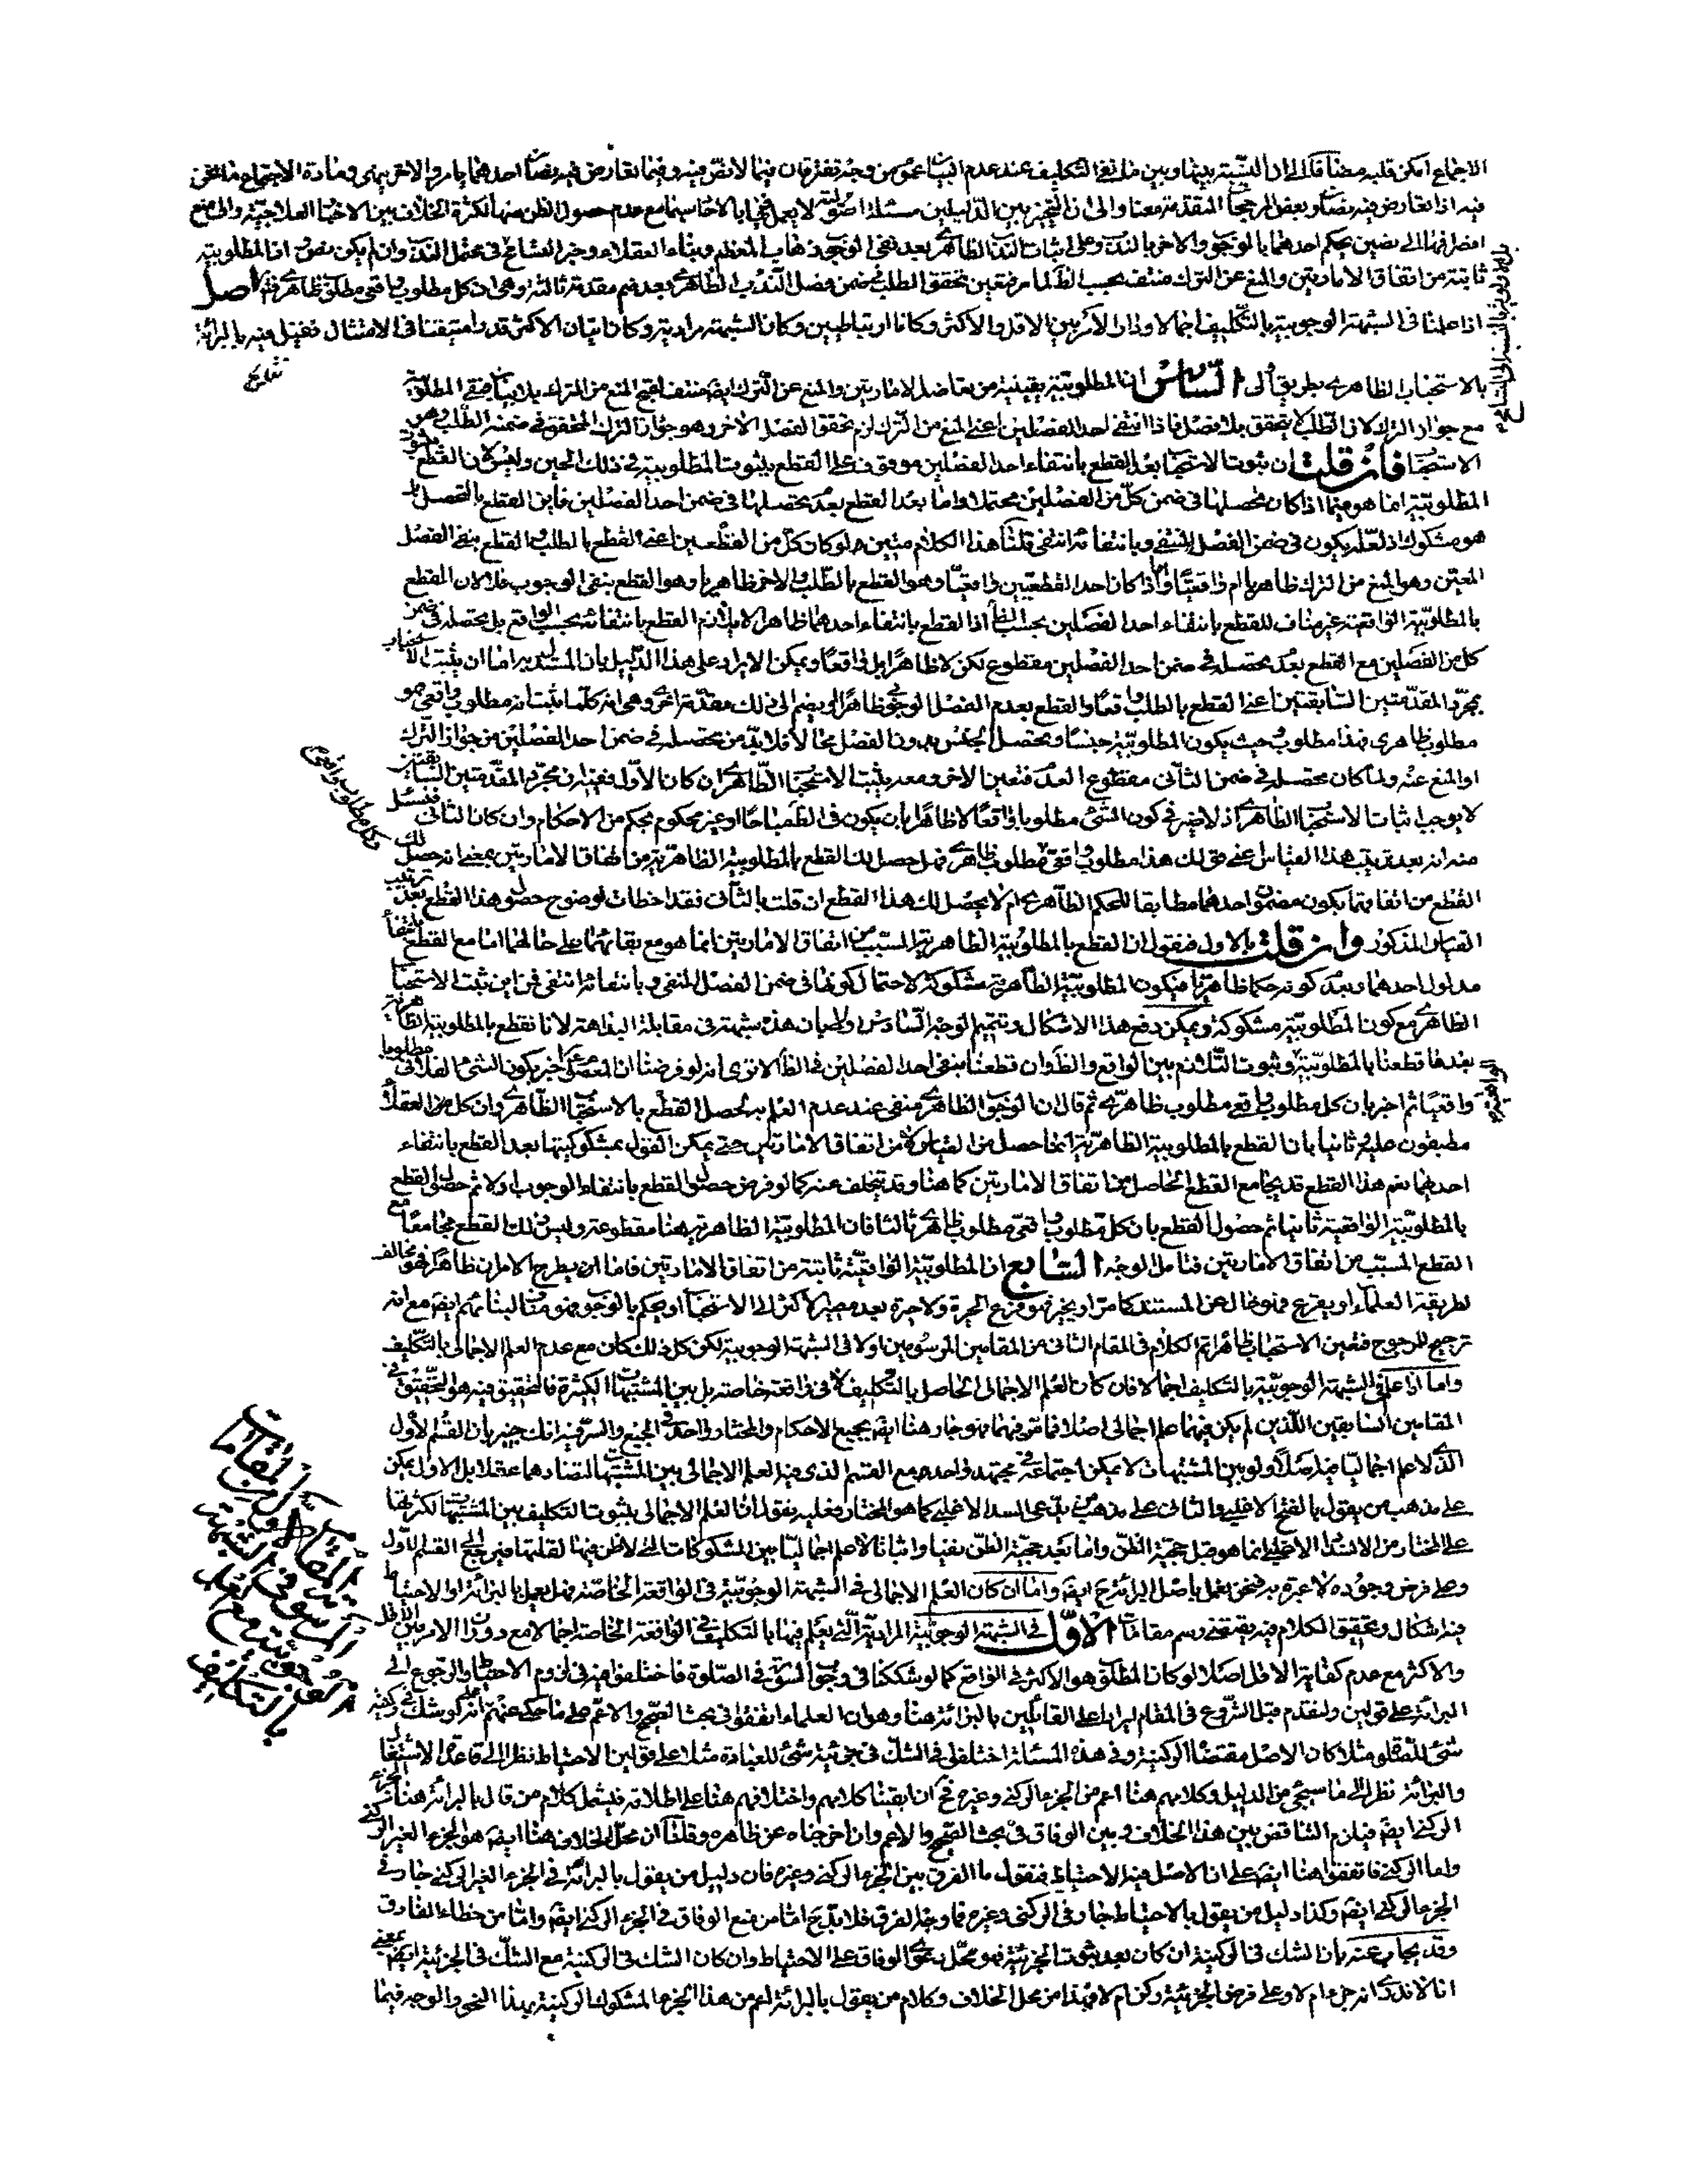 الاجماع امكن قلبه مضافا الى ان النسبة بينها وبين ما نفى التكليف عند عدم البيان عموم من وجه تفترقان فيما لا نص فيه وفيما تعارض فيه نصان احدهما بامر والاخر بنهى ومادة الاجتماع ما نحن
فيه اذا تعارض فيه نصان وبعض المرجحات المتقدمة معنا والى ان التخيير بين الدليلين مسئلة اصولية لا يعمل فيها بالاخاسيما مع عدم حصول الظن منها لكثرة الخلاف بين الاخبار العلاجية والى منع
ثابتة من اتفاق الامارتين والمنع عن الترك منتف بحسب الظ لما مر فتعين تحقق الطلب فى ضمن فصل الندب الظاهرى بعد ضم مقدمة ثالثة وهى ان كل مطلوب واقعى مطلوب ظاهرى فت اصل
اذا علمنا فى الشبهة الوجوبية بالتكليف اجمالا ودار الامر بين الاقل والاكثر وكانا ارتباطيين وكان الشبهة مرادية وكان اتيان الاكثر قدرا متيقنا فى الامتثال فنقيل فيه بالبرائة
بالاستحباب الظاهرى بطريق اولى السادس ان المطلوبية يقينية من تعاضد الامارتين والمنع عن الترك ايضا منتف لقبح المنع من الترك بلا بيان فبقى المطلوبية
مع جواز الترك لان الطلب لا يتحقق بلا فصل فاذا انتفى احد الفصلين اعنى المنع من الترك لزم تحقق الفصل الاخر وهو جواز الترك المتحقق فى ضمنه الطلب وهو
الاستحباب فان قلت ان ثبوت الاستحباب بعد القطع بانتفاء احد الفصلين موقوف على القطع بثبوت المطلوبية فى ذلك الحين وليس لان القطع
المطلوبية انما هو فيما اذا كان تحصلها فى ضمن كل من الفصلين محتملا واما بعد القطع بعدم تحصلها فى ضمن احد الفصلين فاين القطع بالتحصل بل
هو مشكوك اذ لعله يكون فى ضمن الفصل المنتفى وبانتفائه انتفى قلنا هذا الكلام متين لو كان كل من القطعين اعنى القطع بالطلب والقطع بنفى الفصل
المعين وهو المنع من الترك ظاهريا ام واقعيا واما اذا كان احد القطعيين واقعيا وهو القطع بالطلب والاخر ظاهريا وهو القطع بنفى الوجوب فلا لان القطع
بالمطلوبية الواقعية غير مناف للقطع بانتفاء احد الفصلين بحسب الظ اذ القطع بانتفاء احدهما ظاهرا لا يلازم القطع بانتفائه بحسب الواقع بل يحتمله فى ضمن
كل من الفصلين مع القطع بعدم تحصله فى ضمن احد الفصلين مقطوع لكن لا ظاهرا بل واقعا ويمكن الايراد على هذا الدليل بان المستدل به اما ان يثبت الاستحباب
بمجرد المقدمتين السابقتين اعنى القطع بالطلب واقعا والقطع بعدم الفصل الوجوبى ظاهرا او يضم الى ذلك مقدمة اخرى وهى انه كلما ثبت انه مطلوب واقعى فهو
مطلوب ظاهرى فهذا مطلوب حيث يكون المطلوبية جنسا وتحصل الجنس بدون الفصل محالا فلا بد من تحصله فى ضمن احد الفصلين من جواز الترك
او المنع عنه ولما كان تحصله فى ضمن الثانى مقطوع العدم فتعين الاخر ومعه يثبت الاستحباب الظاهرى ان كان الاول فغيه ان مجرد المقدمتين السابقتين
لا يوجب اثبات الاستحباب الظاهرى اذ لا ضير فى كون الشئ مطلوبا واقعا لا ظاهرا بان يكون فى الظ مباحا او غير محكوم بحكم من الاحكام وان كان الثانى فنسئل
منه انه بعد ترتيب هذا القياس اعنى قولك هذا مطلوب واقعى وكل مطلوب واقعى مطلوب ظاهرى فهل حصل لك القطع بالمطلوبية الظاهرية من اتفاق الامارتين بمعنى انه حصل لك
القطع من اتفاقهما بكون مضمون احدهما مطابقا للحكم الظاهرى ام لا يحصل لك هذا القطع ان قلت بالثانى فقد اخطات لوضوح حصول هذا القطع بعد ترتيب
القياس المذكور وان قلت بالاول فنقول ان القطع بالمطلوبية الظاهرية المسبب من اتفاق الامارتين انما هو مع بقائهما على حالهما اما مع القطع بانتفاء
مدلول احدهما وبعدم كونه حكما ظاهريا فيكون المطلوبية الظاهرية مشكوكة لاحتمال كونها فى ضمن الفصل المنفى وبانتفائه انتفى فمن اين ثبت الاستحباب
الظاهرى مع كون المطلوبية مشكوكة ويمكن دفع هذا الاشكال وتتميم الوجه السادس اولا بان هذه شبهة فى مقابلة البداهة لانا نقطع بالمطلوبية الظاهرية
بعد ما قطعنا بالمطلوبية وثبوت التلازم بين الواقع والظ وان قطعنا بنفى احد الفصلين فى الظ الا ترى انه لو فرضنا ان المعصوم اخبر بكون الشئ الفلانى مطلوبا
واقعيا ثم اخبر بان كل مطلوب واقعى مطلوب ظاهرى ثم قال ان الوجوب الظاهرى منفى عند عدم العلم به لحصل القطع بالاستحباب الظاهرى وان كل من العقلاء
مطبقون عليه وثانيا بان القطع بالمطلوبية الظاهرية انما حصل من القياس لا من اتفاق الامارتين حتى يمكن القول بمشكوكيتها بعد القطع بانتفاء
احدهما نعم هذا القطع قد يجامع القطع الحاصل من اتفاق الامارتين كما هنا وقد يتخلف عنه كما لو فرض حصول القطع بانتفاء الوجوب اولا ثم حصول القطع
بالمطلوبية الواقعية ثانيا ثم حصول القطع بان كل مطلوب واقعى مطلوب ظاهرى ثالثا فان المطلوبية الظاهرية هنا مقطوعة وليس ذلك القطع مجامعا مع
القطع المسبب من اتفاق الامارتين فتامل الوجه السابع ان المطلوبية الواقعية ثابتة من اتفاق الامارتين فاما ان يطرح الامران ظاهرا فهو مخالف
لطريقة العلماء او يقرع فهو خال عن المستند كما مر او يخير فهو فرع الحيرة ولا حيرة بعد مصير الاكثر الى الاستحباب او يحكم بالوجوب فهو مناف لبنائهم ايضا مع انه
ترجيح للمرجوح فتعين الاستحباب ظاهرا تم الكلام فى المقام الثانى من المقامين المرسومين اولا فى الشبهة الوجوبية لكن كل ذلك كان مع عدم العلم الاجمالى بالتكليف
واما اذا علم فى الشبهة الوجوبية بالتكليف اجمالا فان كان العلم الاجمالى الحاصل بالتكليف لا فى واقعة خاصة بل بين المشتبهات الكثيرة فالتحقيق فيه هو التحقيق فى
المقامين السابقين اللذين لم يكن فيهما علم اجمالى اصلا فما مر فيهما فهو جار هنا ايضا بجميع الاحكام والمختار واحد فى الجميع والسر فيه انك خبير بان القسم الاول
الذى لا علم اجماليا فيه اصلا ولو بين المشتبهات لا يمكن اجتماعه فى مجتهد واحد مع القسم الذى فيه العلم الاجمالى بين المشتبهات لتضادهما عقلا بل الاول يمكن
على مذهب من يقول بالفتح الاغلبى والثانى على مذهب من يدعى السد الاغلبى كما هو المختار وعليه نقول ان العلم الاجمالى بثبوت التكليف بين المشتبهات لكثرتها
على المختار من الانسداد الاغلبى انما هو قبل حجية الظن واما بعد حجية الظن نفيا واثباتا فلا علم اجماليا بين المشكوكات التى لا ظن فيها لقلتها فيرجع الى القسم الاول
وعلى فرض وجوده لا عبرة به فنحن نعمل باصل البرائة ح ايضا واما ان كان العلم الاجمالى فى الشبهة الوجوبية فى الواقعة الخاصة فهل يعمل بالبرائة او الاحتياط
فيه اشكال وتحقيق الكلام فيه يقتضى رسم مقامات الاول فى الشبهة الوجوبية المرادية التى يعلم فيها بالتكليف فى الواقعة الخاصة اجمالا مع دوران الامر بين الاقل
والاكثر مع عدم كفاية الاقل اصلا لو كان المطلوب هو الاكثر فى الواقع كما لو شككنا فى وجوب السورة فى الصلوة فاختلفوا فيه فى لزوم الاحتياط والرجوع الى
البرائة على قولين ولنقدم قبل الشروع فى المقام ايرادا على القائلين بالبرائة هنا وهو ان العلماء اتفقوا فى بحث الصحيح والاعم على ما حكى عنهم انه لو شك فى ركنية
شئ للصلوة مثلا كان الاصل مقتضيا الركنية وفى هذه المسئلة اختلفوا فى الشك فى جزئية شئ للعبادة مثلا على قولين الاحتياط نظرا الى قاعدة الاشتغال
والبرائة نظرا الى ما سيجئ من الدليل وكلامهم هنا اعم من الجزء الركنى وغيره فح ان ابقينا كلامهم واختلافهم هنا على اطلاقه فيشمل كلام من قال بالبرائة هنا الجزء
الركنى ايضا فيلزم التناقض بين هذا الخلاف وبين الوفاق فى بحث الصحيح والاعم وان اخرجناه عن ظاهره وقلنا ان محل الخلاف هنا ايضا هو الجزء الغير الركنى
واما الركنى فاتفقوا هنا ايضا على ان الاصل فيه الاحتياط فنقول ما الفرق بين الجزء الركنى وغيره فان دليل من يقول بالبرائة فى الجزء الغير الركنى جار فى
الجزء الركنى ايضا وكذا دليل من يقول بالاحتياط جار فى الركنى وغيره فما وجه الفرق فلا بد ح اما من منع الوفاق فى الجزء الركنى ايضا واما من خطاء الفارق
وقد يجاب عنه بان الشك فى الركنية ان كان بعد ثبوت الجزئية فهو محل دعوى الوفاق على الاحتياط وان كان الشك فى الركنية مع الشك فى الجزئية ايضا بمعنى
انا لا ندرى انه جزء ام لا وعلى فرض الجزئية ركن ام لا فهذا من محل الخلاف وكلام من يقول بالبرائة اعم من هذا الجزء المشكوك الركنية بهذا النحو والوجه فيما